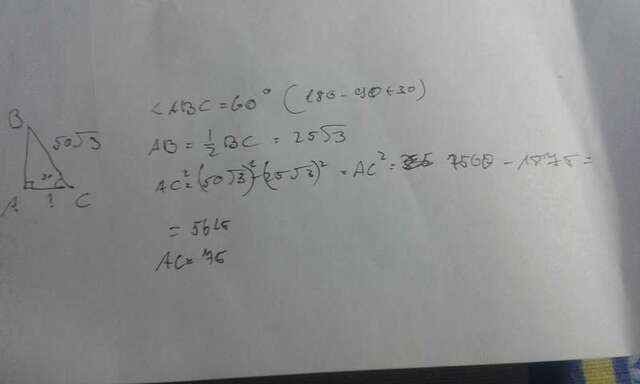 B
50√3
30°
A ? C
<ABC = 60° (180 - 90+30)
AB = 1/2 BC = 25√3
AC² = (50√3)² - (25√3)² = AC² = 7500 - 1875 =
= 5625
AC = 75